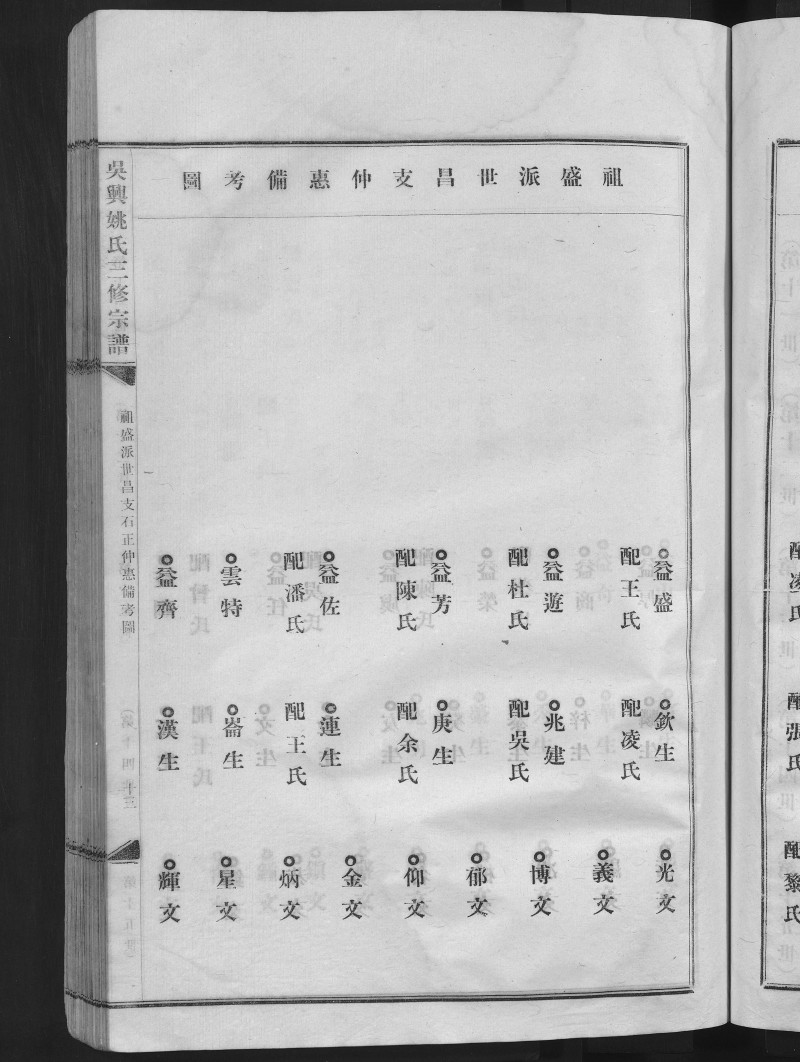 祖盛派世昌支仲惠備考圖
益盛
配王氏
益遊
配杜氏
益芳
配陳氏
益佐
配潘氏
雲特
益齊
欽生
配凌氏
兆建
配吳氏
庚生
配余氏
連生
配王氏
崙生
漢生
光文
義文
博文
郁文
仰文
金文
炳文
星文
輝文
吳興姚氏三修宗譜
祖盛派世昌支石正仲惠備考圖
配凌氏
配張氏
配黎氏